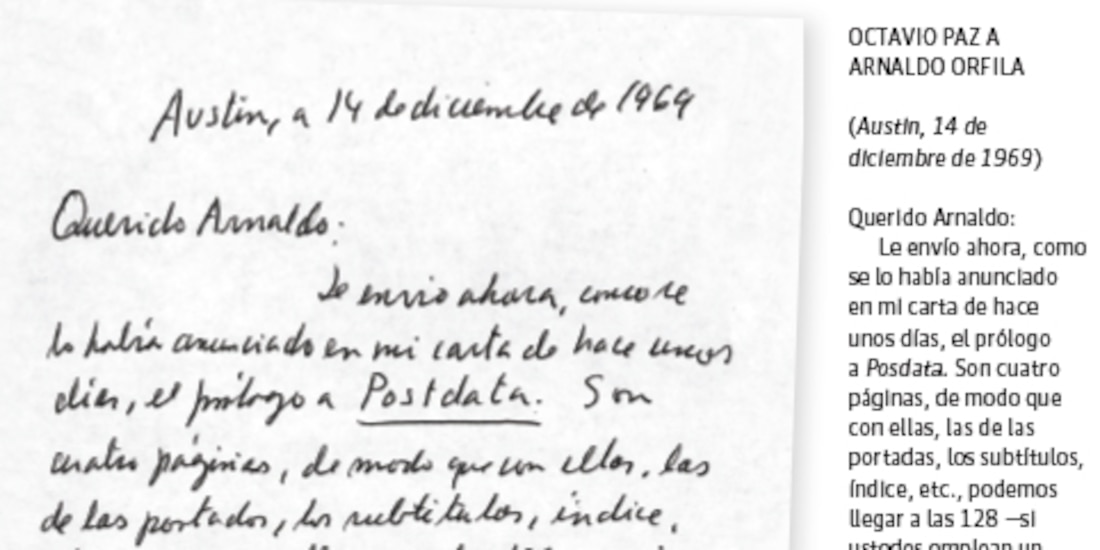 Austin, a 14 de diciembre de 1969
Querido Arnaldo:
Le envio ahora, como se
lo había anunciado en mi carta de hace unos
días, el prólogo a Postdata. Son
cuatro páginas, de modo que con ellas, las
de las portadas, los subtítulos, índice,
OCTAVIO PAZ A
ARNALDO ORFILA
(Austin, 14 de
diciembre de 1969)
Querido Arnaldo:
Le envío ahora, como
se lo había anunciado
en mi carta de hace
unos días, el prólogo
a Posdata. Son cuatro
páginas, de modo que
con ellas, las de las
portadas, los subtítulos,
índice, etc., podemos
llegar a las 128 —si
ustedes emplean un